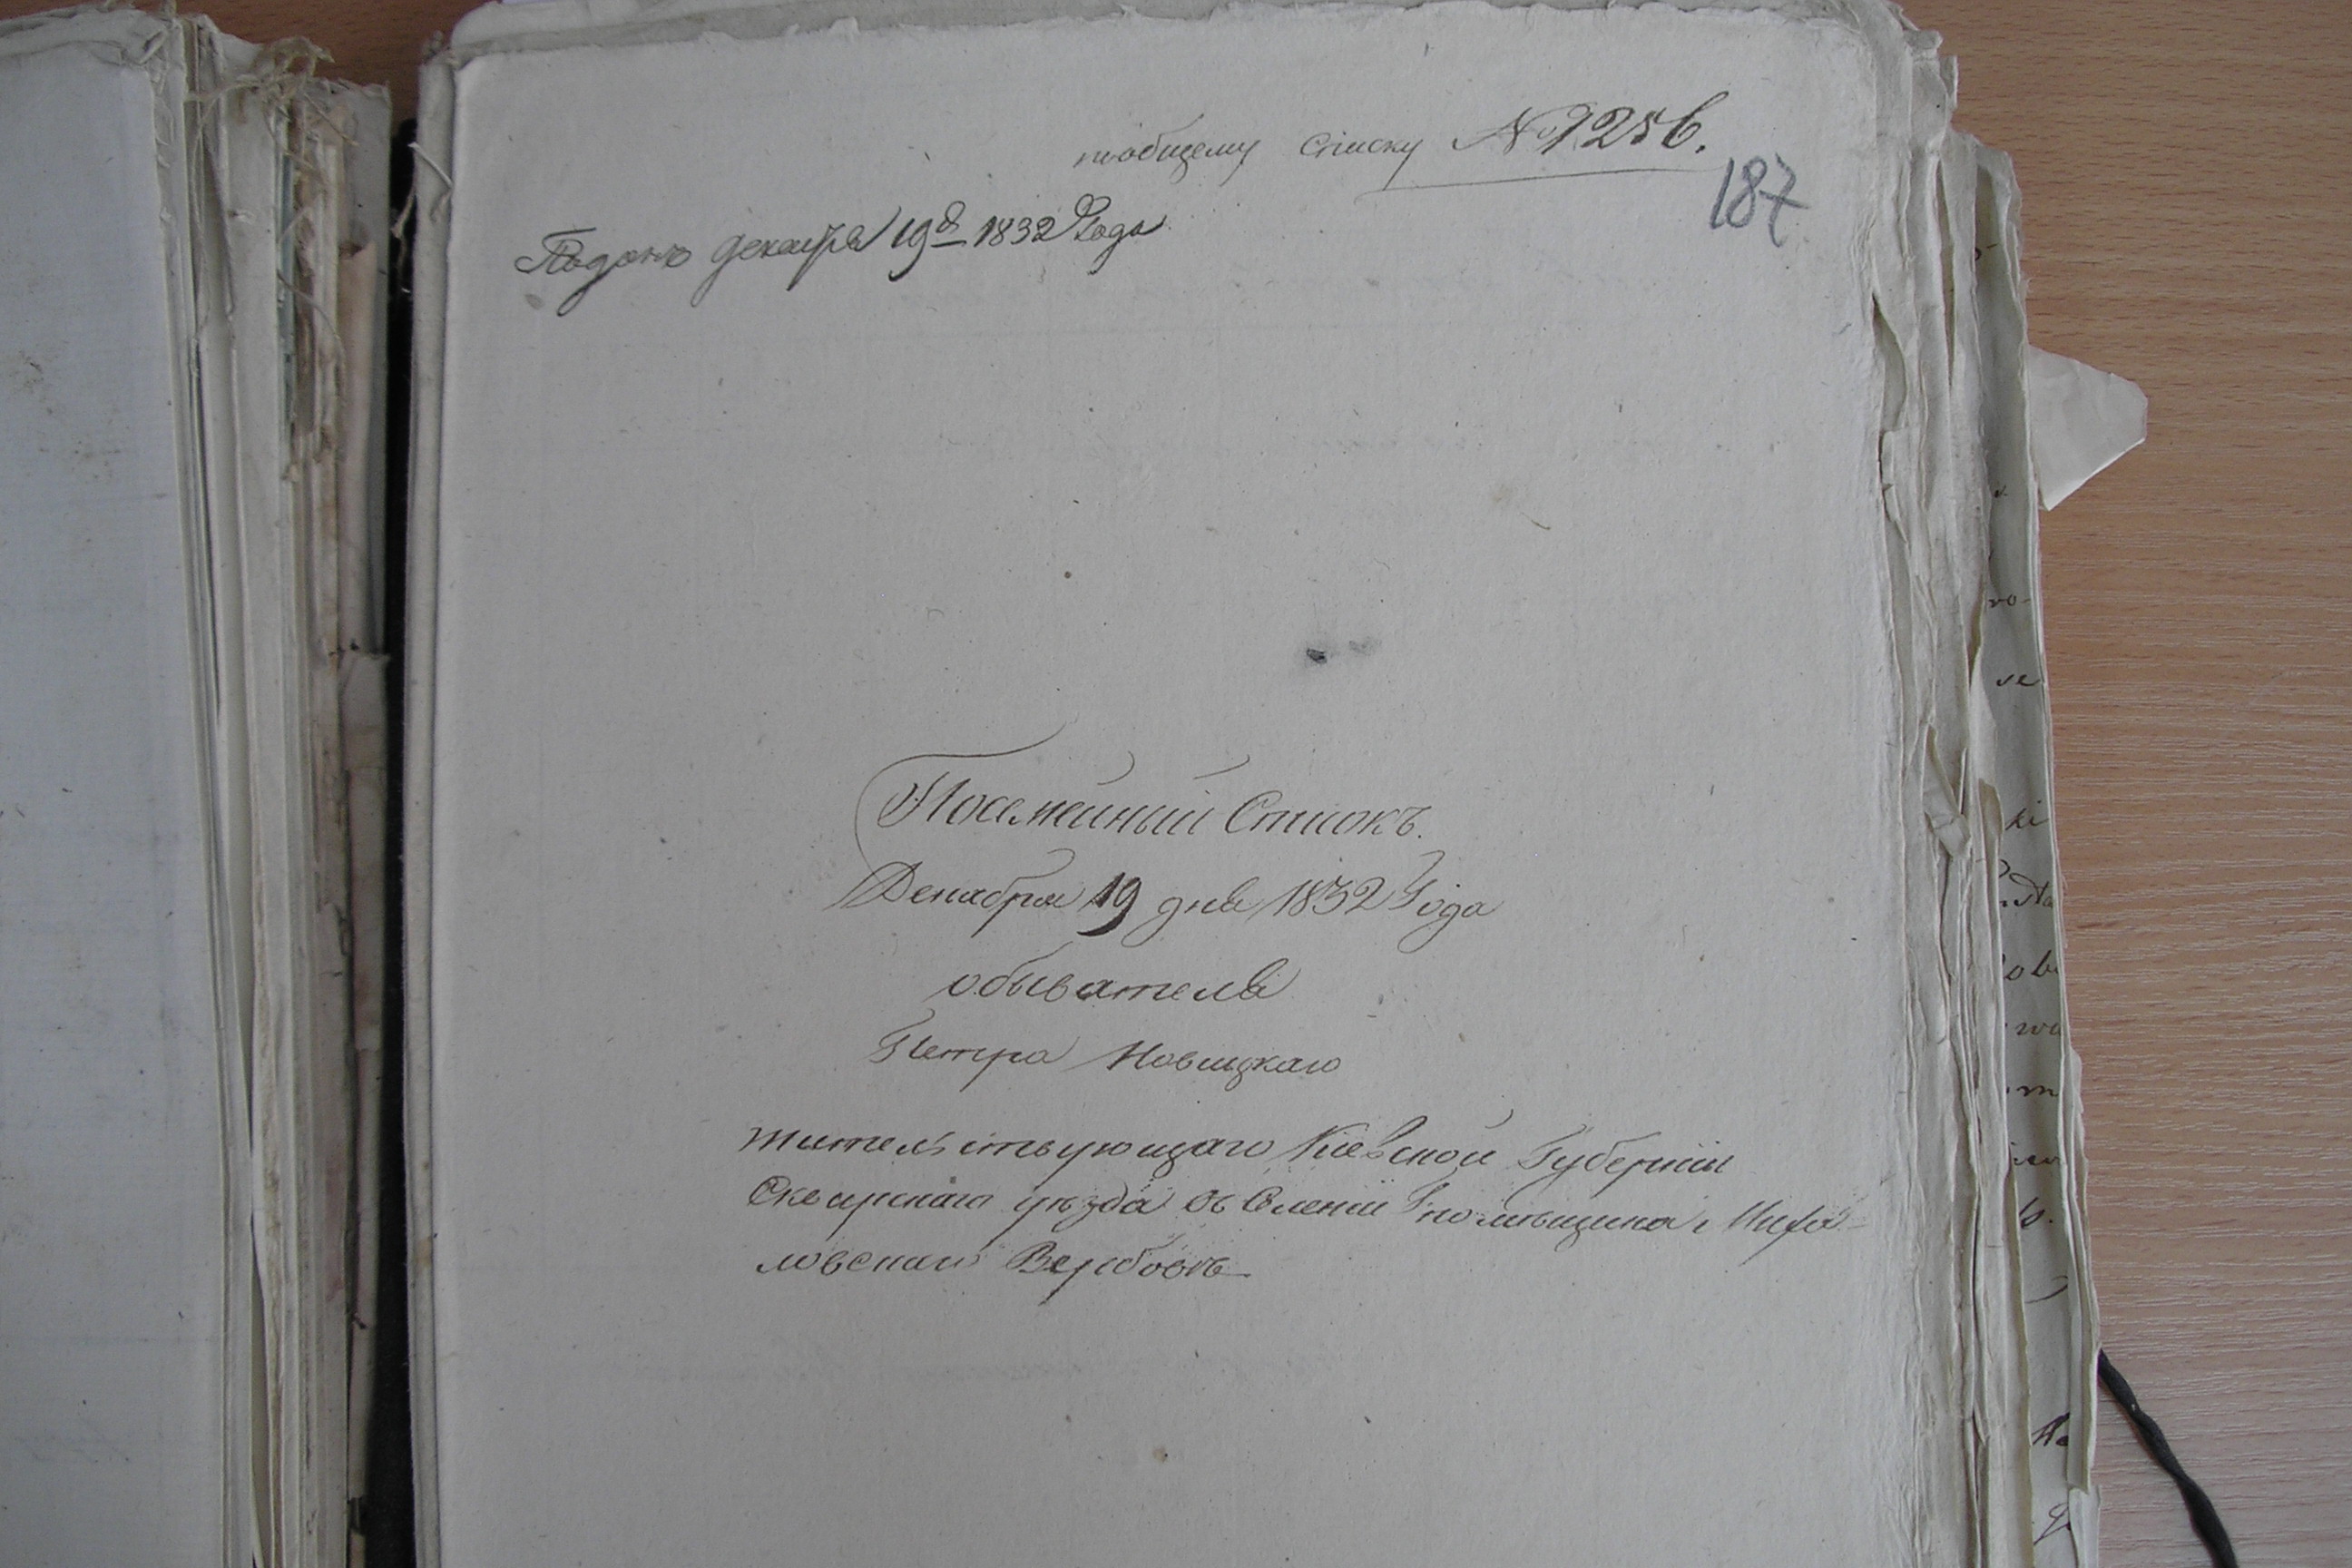 пообщему списку № 1256.
187
Поданъ декабря 19д 1832 Года
Посемейный Списокъ.
Декабря 19 дня 1832 Года
обывателя
Петра Новицкаго
жительствующаго Кіевской Губерніи
Сквирскаго уѣзда въ Селеніи помѣщика Миха-
ловскаго Вербовѣ